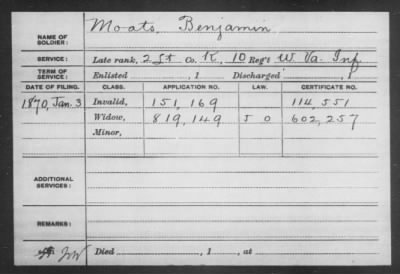 NAME OF SOLDIER: Moats, Benjamin
SERVICE: Late rank, 2 Lt Co. K, 10 Reg't W. Va. Inf
TERM OF SERVICE: Enlisted , 1 Discharged , 1
DATE OF FILING. CLASS. APPLICATION NO. LAW. CERTIFICATE NO.
1870, Jan. 3 Invalid, 151,169 114,551
Widow, 819,149 5 0 602,257
Minor,
ADDITIONAL SERVICES:
REMARKS:
Died , 1 , at